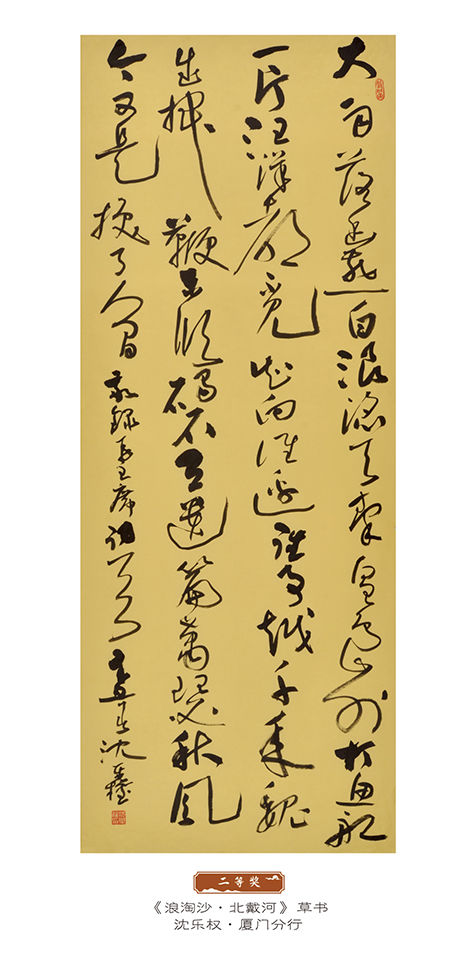 大雨落幽燕白浪滔天秦皇岛外打鱼船
一片汪洋都不见知向谁边往事越千年魏
武挥鞭东临碣石有遗篇萧瑟秋风
今又是换了人间敬录毛主席词沈乐权
二等奖
《浪淘沙·北戴河》草书
沈乐权·厦门分行